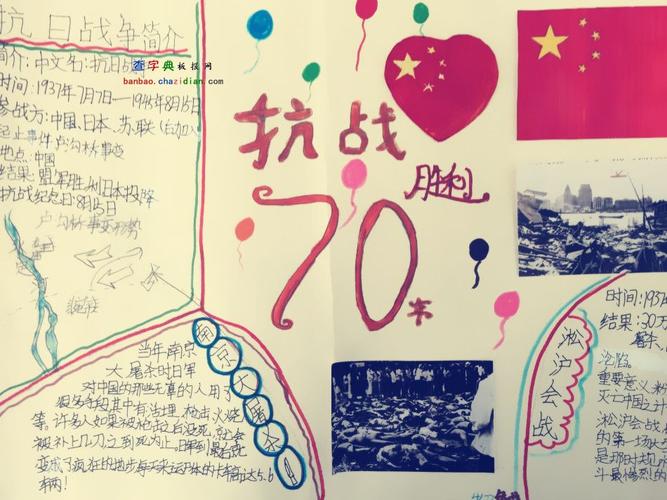 抗日战争简介
查字典板报网
banbao.chazidian.com
简介:中文名:抗日战
时间:1937年7月7日—1945年8月15日
参战方:中国、日本、苏联(后加入
起止事件卢沟桥事变
地点:中国
结果:盟军胜利日本投降
抗战纪念日8月15日
卢沟桥事变形势
抗战
胜利
70
南京大屠杀
当年南京
大屠杀时日军
对中国的那些无辜的人用了
其中有活埋、枪击、火烧
等。许多人如果被枪击后没死,就会
被补上几刀之到死为止。日军到最后
变成了疯狂的地步每天来运
辆!
淞沪会战
时间:1937
结果:30万
重要意
灭亡中国之计
淞沪会战
的第一场大
是那时规
斗最惨烈的